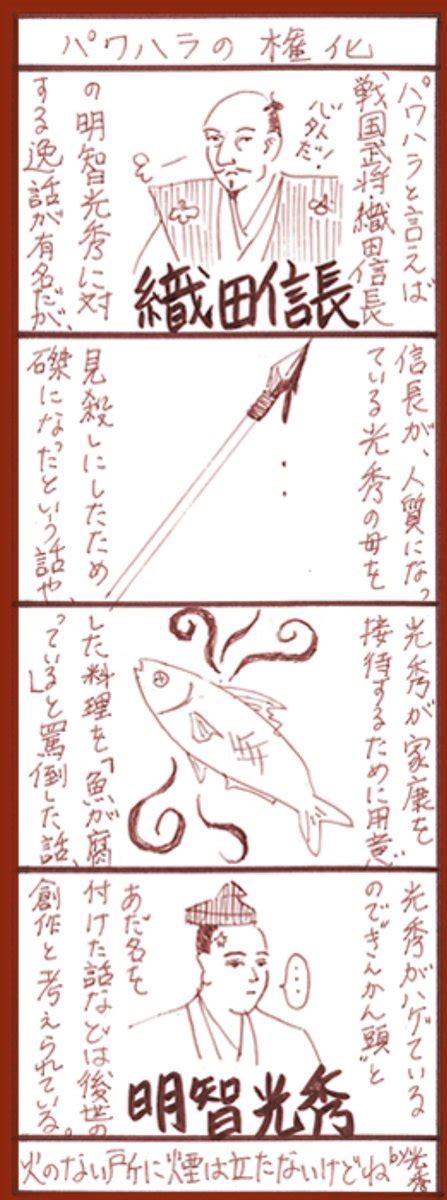 パワハラの権化
パワハラと言えば
戦国武将・織田信長
心外だ!
の明智光秀に対
する逸話が有名だが、
織田信長
信長が、人質になっ
ている光秀の母を
見殺しにしたため
磔になったという話や、
光秀が家康を
接待するために用意
した料理を「魚が腐
っている」と罵倒した話、
光秀がハゲている
のでぎんかん頭”と
…
あだ名を
付けた話などは後世の
創作と考えられている。
明智光秀
火のない所に煙は立たないけどね by光秀